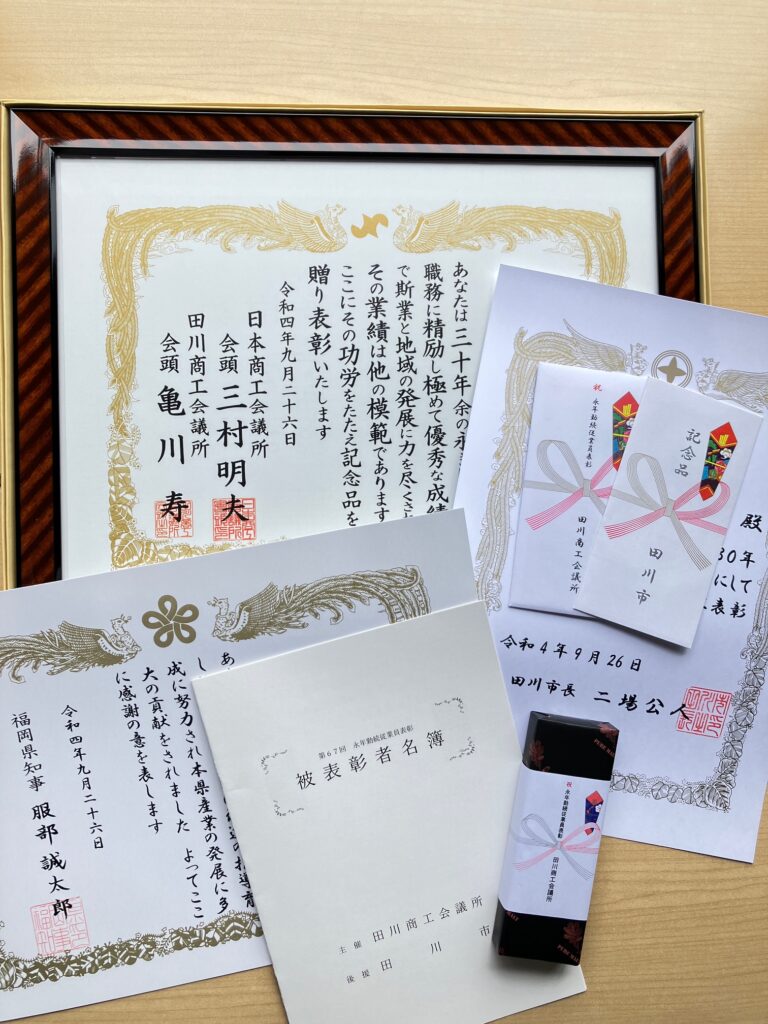 あなたは三十年余の永
職務に精励し極めて優秀な成績
で斯業と地域の発展に力を尽くされ
その業績は他の模範であります
ここにその功労をたたえ記念品を
贈り表彰いたします
令和四年九月二十六日
日本商工会議所
会頭 三村明夫
田川商工会議所
会頭 亀川 寿
祝
永年勤続従業員表彰
田川商工会議所
記念品
田川市
殿
30年
にして
表彰
令和4年9月26日
田川市長 二場公人
あ
し
成に努力され本県産業の発展に多
大の貢献をされました よってここ
に感謝の意を表します
令和四年九月二十六日
福岡県知事 服部誠太郎
第67回 永年勤続従業員表彰
被表彰者名簿
主催 田川商工会議所
後援 田川市
祝
永年勤続従業員表彰
田川商工会議所